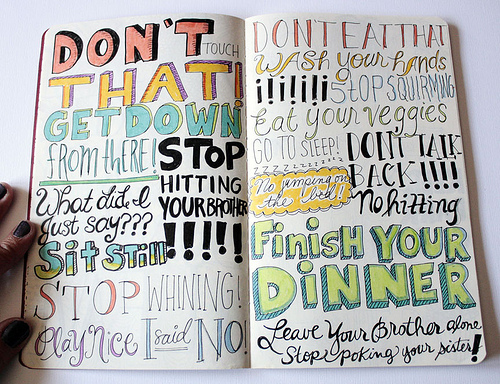 DON'T TOUCH
THAT!
GET DOWN
from tHERE!
STOP
HITTING
YOUR BROTHER
!!!!!
What did I
just say???
Sit Still!
STOP WHINING!
Play Nice I said NO!
DON'T EAT THAT
WASH your hands
!¡!¡!¡! STOP SQUIRMING
Eat your veggies
GO TO SLEEP!
zzzzzzzzzzzz
DON'T TALK
BACK!!!!
No jumping on
the bed!
No hitting
FiniSH YOUR
DiNNER
Leave Your Brother alone
Stop poking your sister!